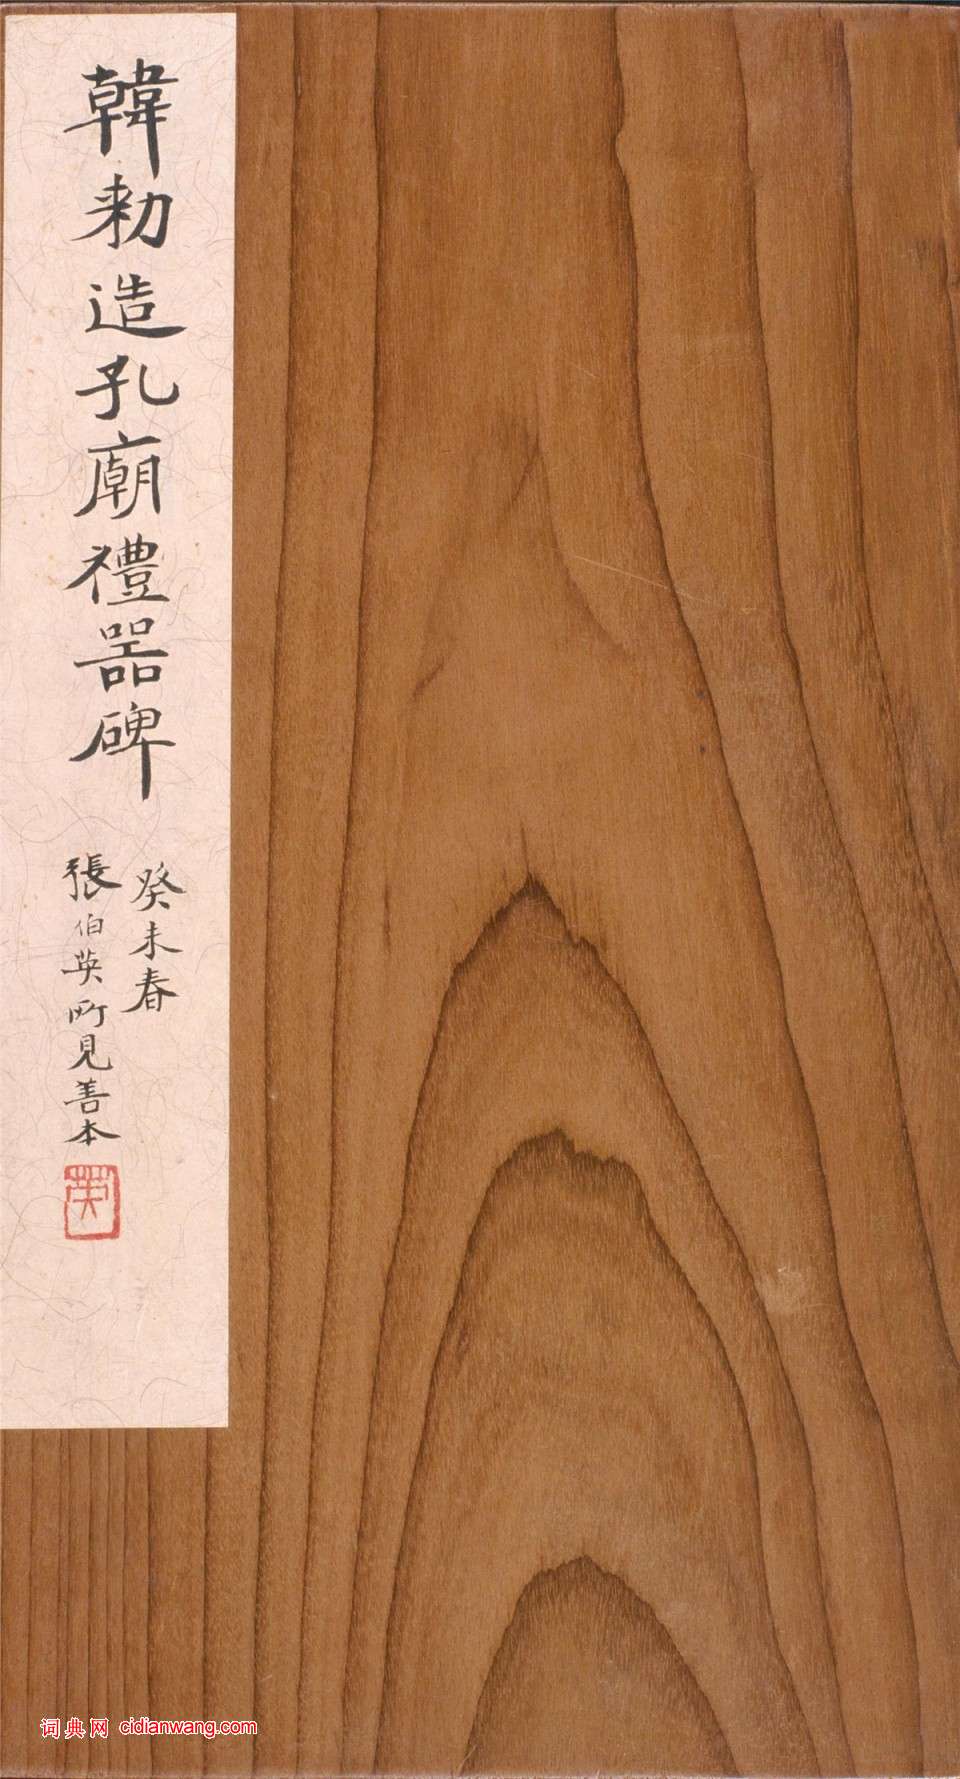 韓勑造孔廟禮器碑
癸未春
張伯英所見善本
英
词典网 cidianwang.com